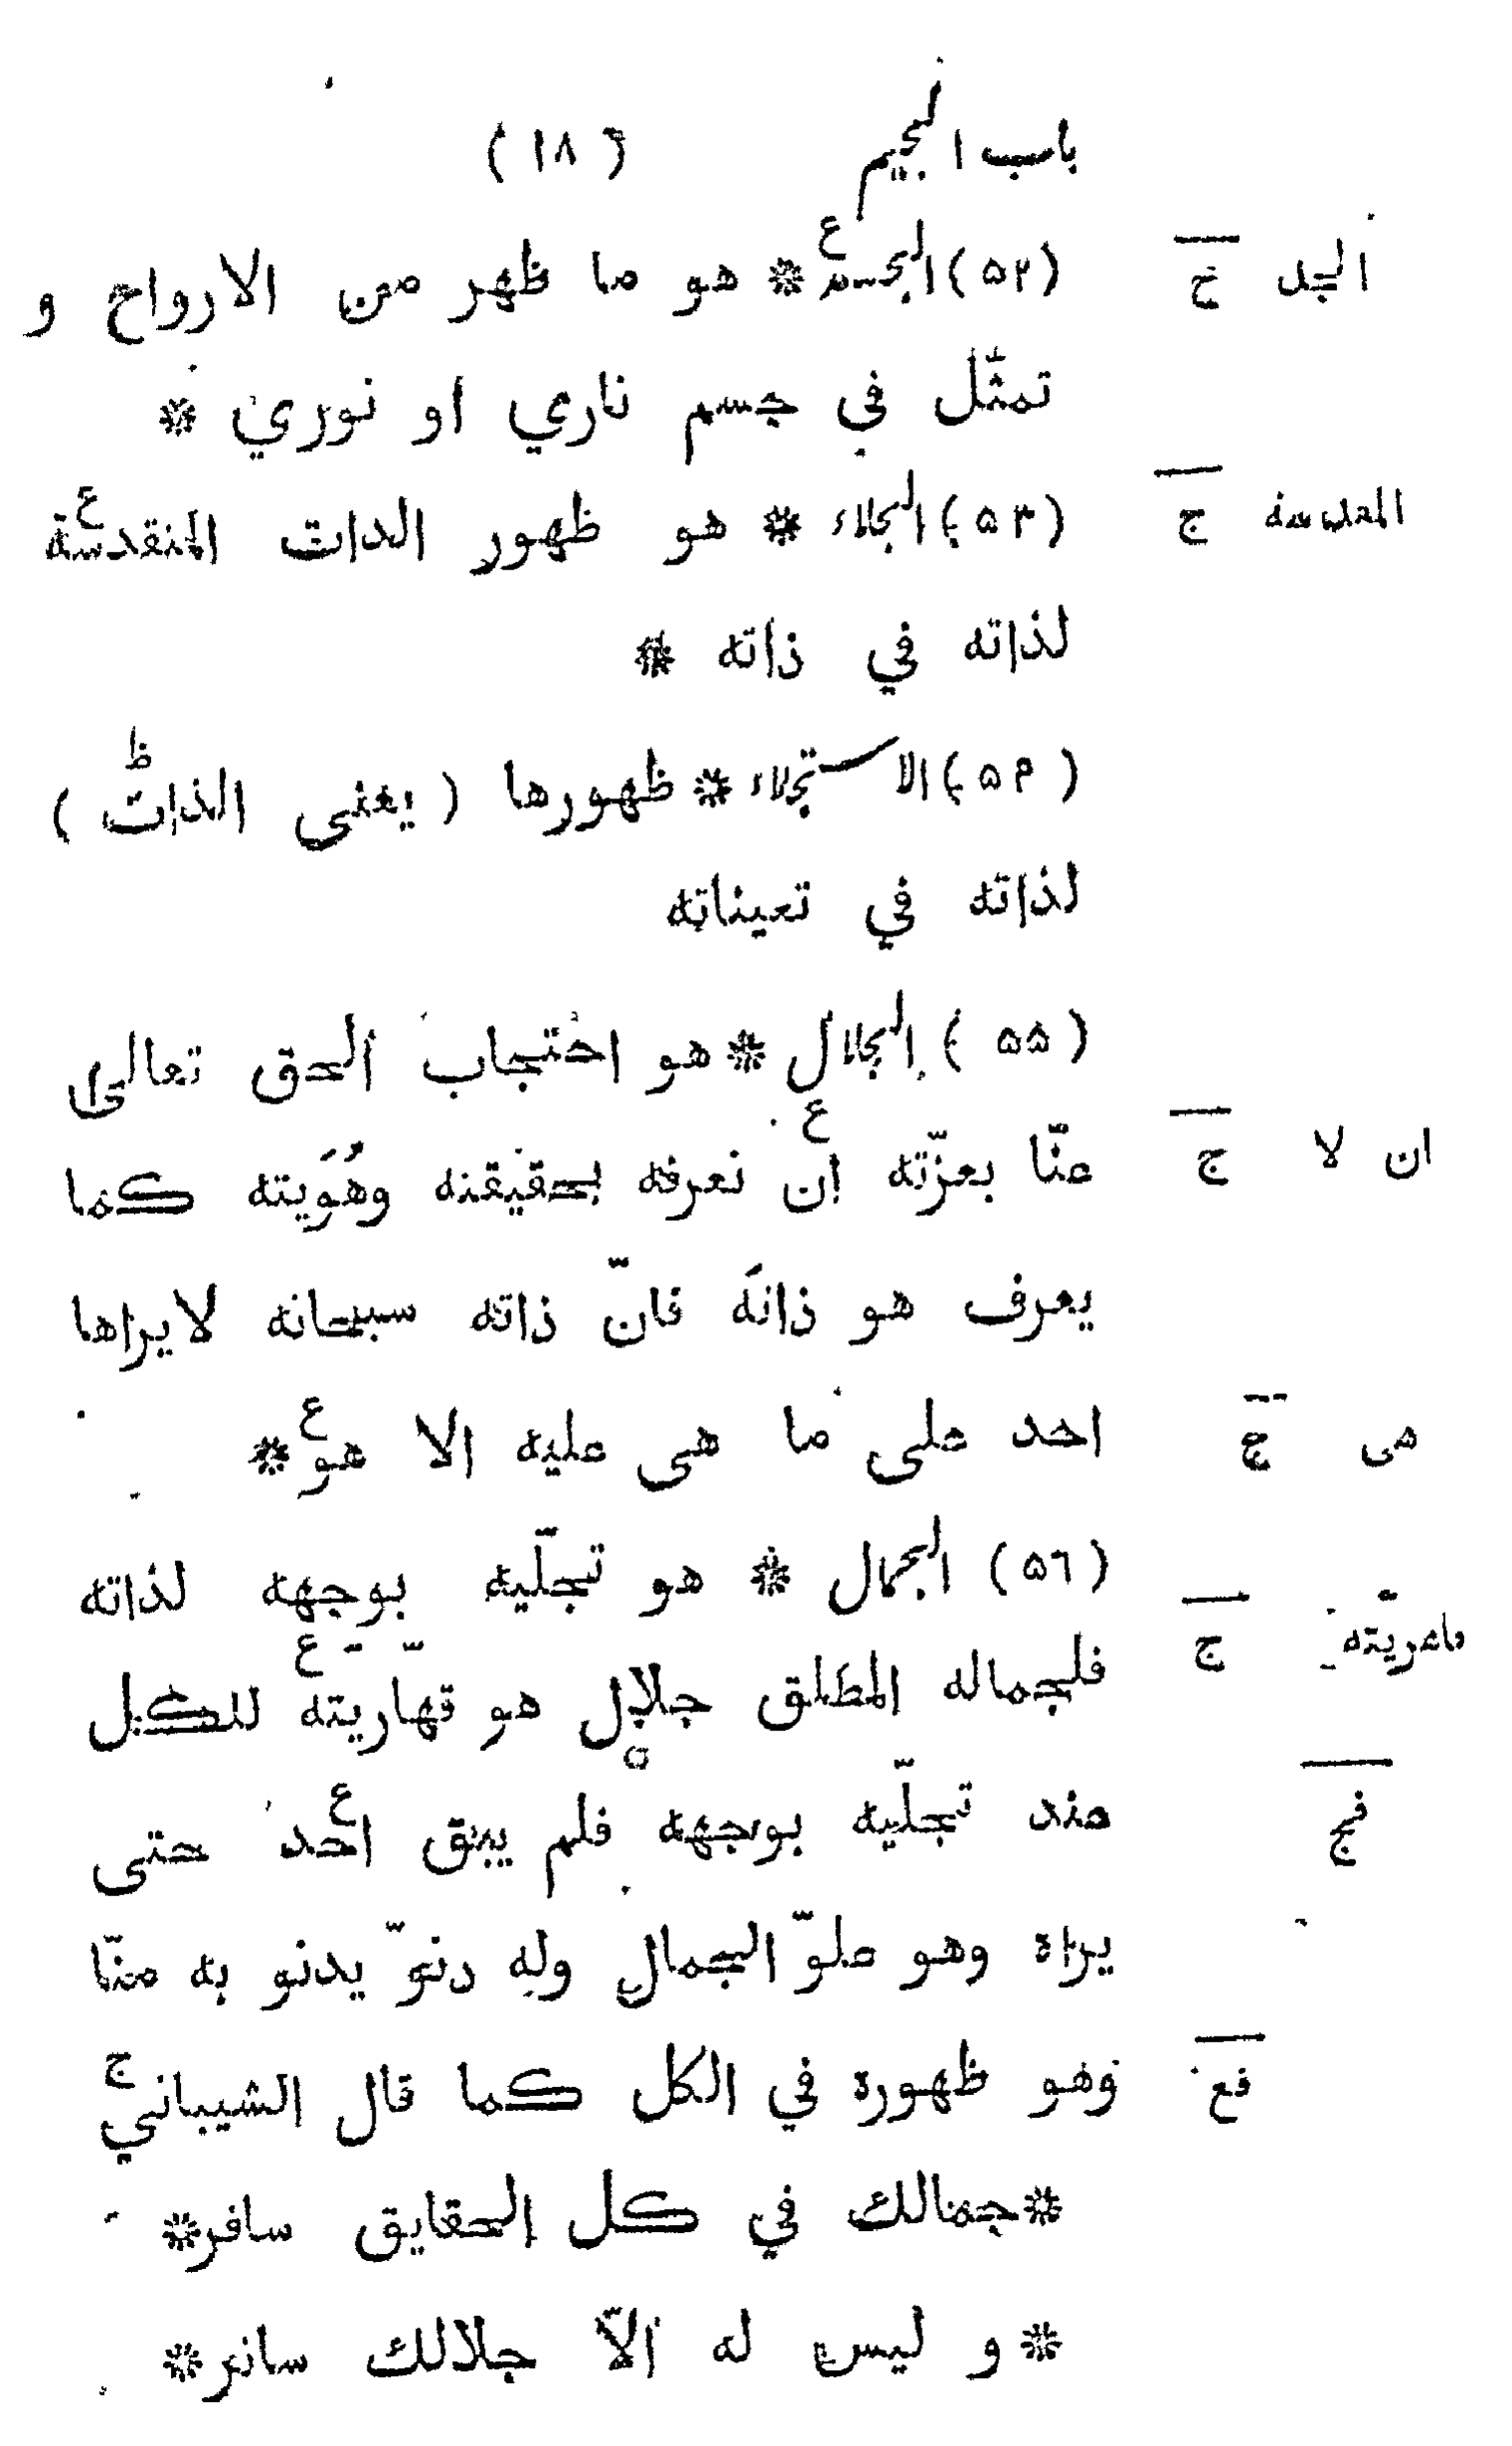 باب الجيم ( ١٨ )
(٥٢) الجسمع * هو ما ظهر من الارواح و
الجد خ
تمثّل في جسم ناري او نوري *
(٥٣) الجلاء * هو ظهور الذات المتقدسةع
المقدسة ج
لذاته في ذاته *
(٥٤) الاستجلاء * ظهورها ( يعنى الذات ظ )
لذاته في تعيناته
(٥٥) الجلال * هو احتجاب الحق تعالى
عنّا بعزّته انع نعرفه بحقيقته وهُويته كما
ان لا ج
يعرف هو ذاته فانّ ذاته سبحانه لا يراها
احد على ما هى عليه الا هوع *
هى ج
(٥٦) الجمال * هو تجلّيه بوجهه لذاته
فلجماله المطلق جلال هو قهّاريّتهع للكل
ج
عند تجلّيه بوجهه فلم يبق احدع حتى
فج
يراه وهو علوّ الجمال وله دنوّ يدنو به منّا
وهو ظهوره في الكل كما قال الشيباني ج
فع
* جمالك في كل الحقايق سافر *
* و ليس له الاّ جلالك ساتر *